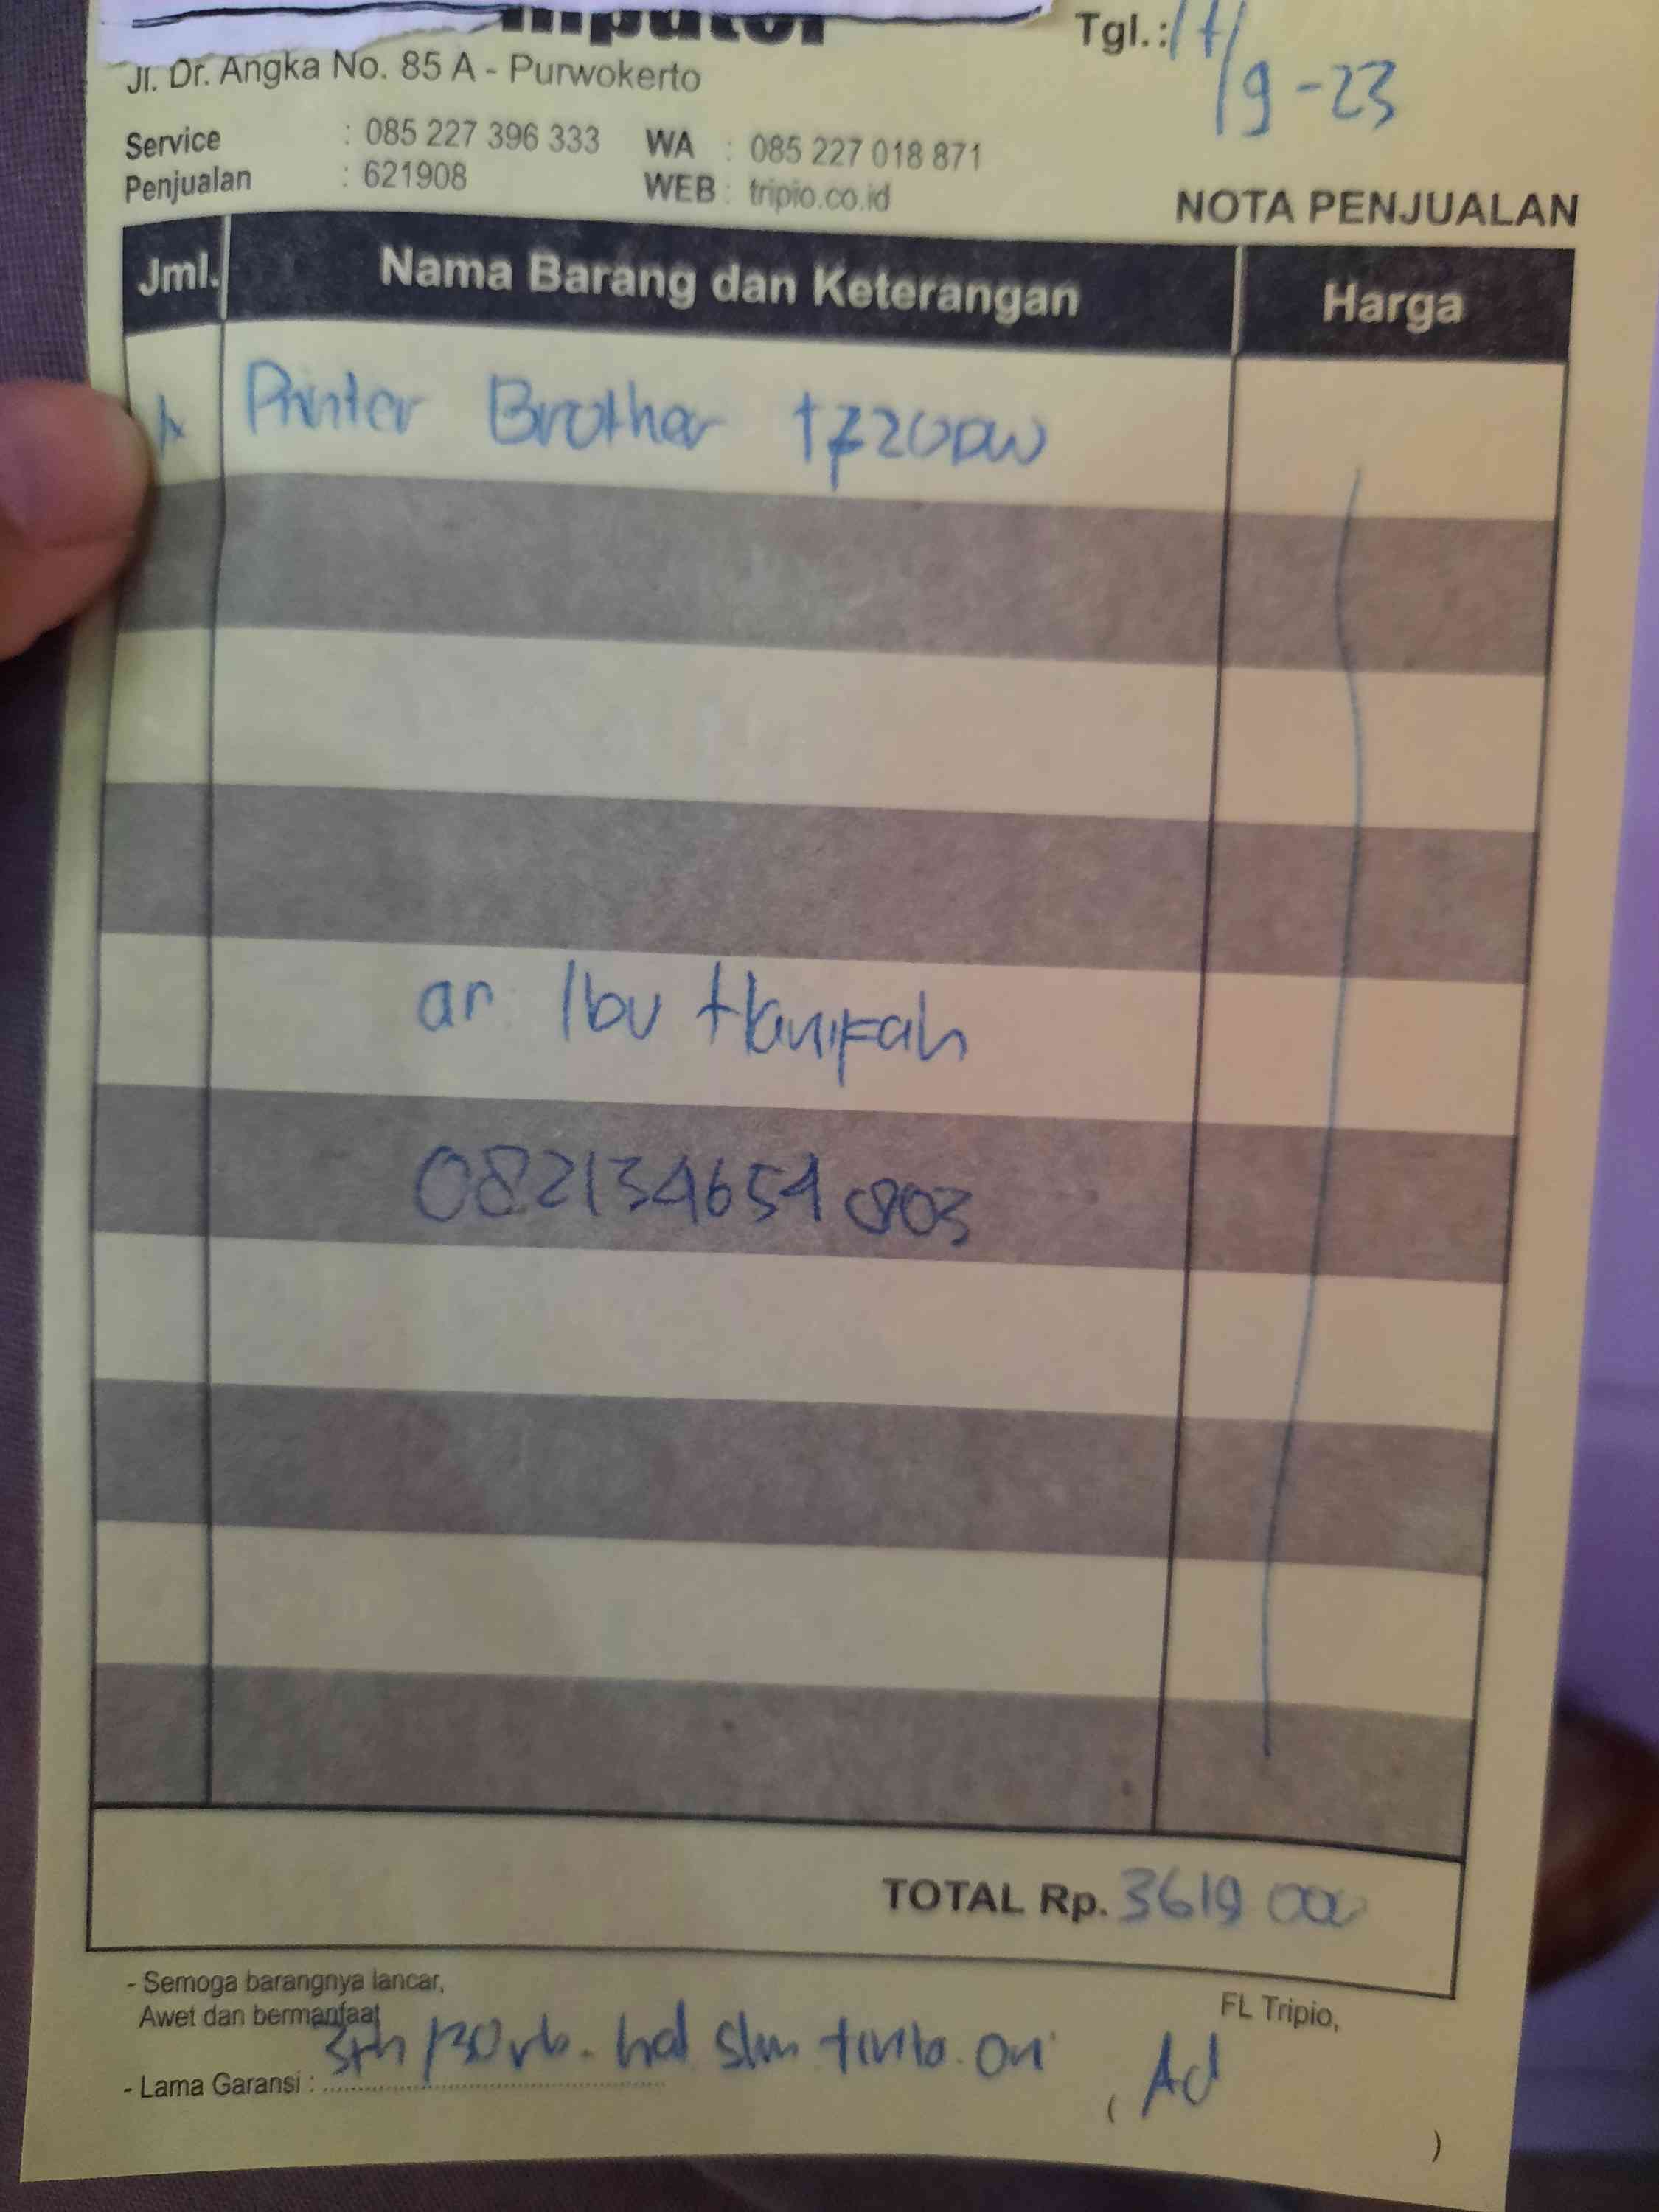 Tgl.: 17/9-23
Jl. Dr. Angka No. 85 A - Purwokerto
Service : 085 227 396 333 WA : 085 227 018 871
Penjualan : 621908 WEB : tripio.co.id
NOTA PENJUALAN
Jml. Nama Barang dan Keterangan Harga
1 Printer Brother T720DW
an Ibu Hanifah
082134654803
TOTAL Rp. 3619 000
- Semoga barangnya lancar,
Awet dan bermanfaat
FL Tripio,
- Lama Garansi : 3th / 30rb. hal tinta ori
( Ad )